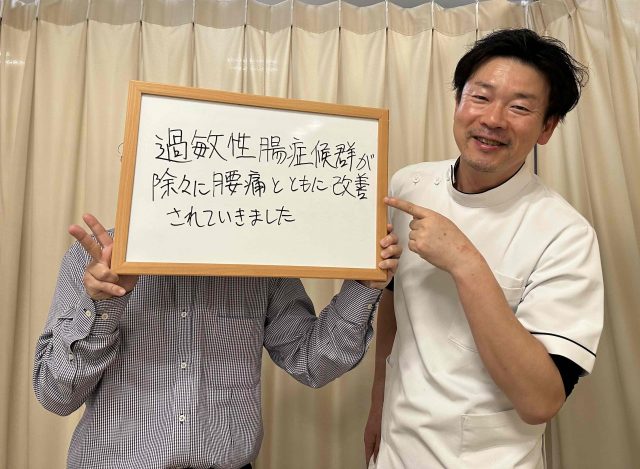 過敏性腸症候群が
除々に腰痛とともに改善
されていきました